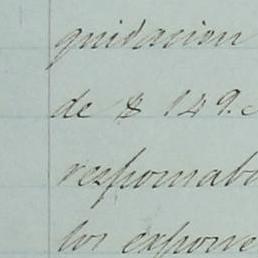 quidacion
de $ 149.c
responsabi
los expone